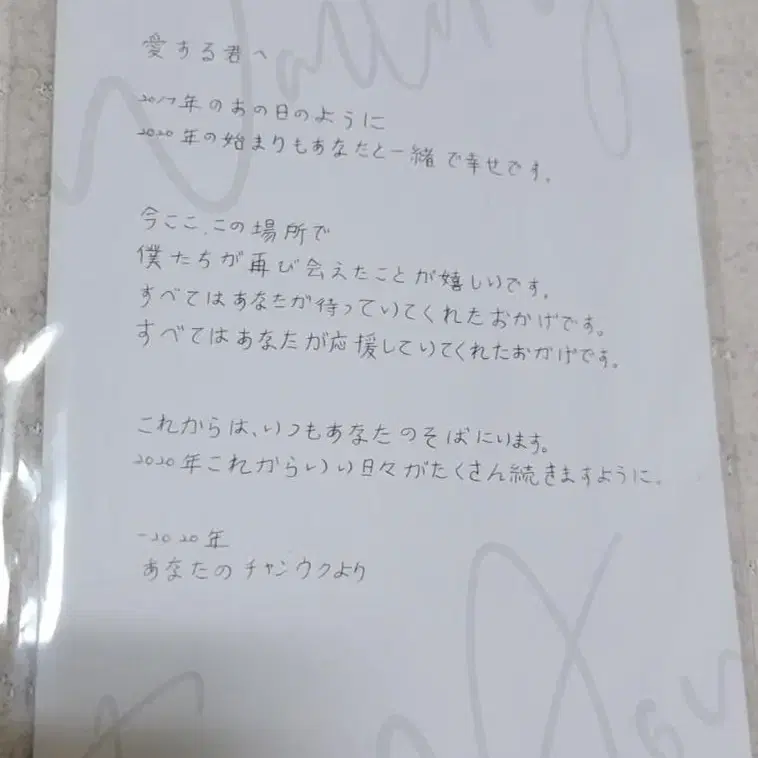 愛する君へ
2017年のあの日のように
2020年の始まりもあなたと一緒で幸せです。
今ここ、この場所で
僕たちが再び会えたことが嬉しいです。
すべてはあなたが待っていてくれたおかげです。
すべてはあなたが応援していてくれたおかげです。
これからは、いつもあなたのそばにいます。
2020年これからいい日々がたくさん続きますように。
-2020年
あなたのチャンウクより